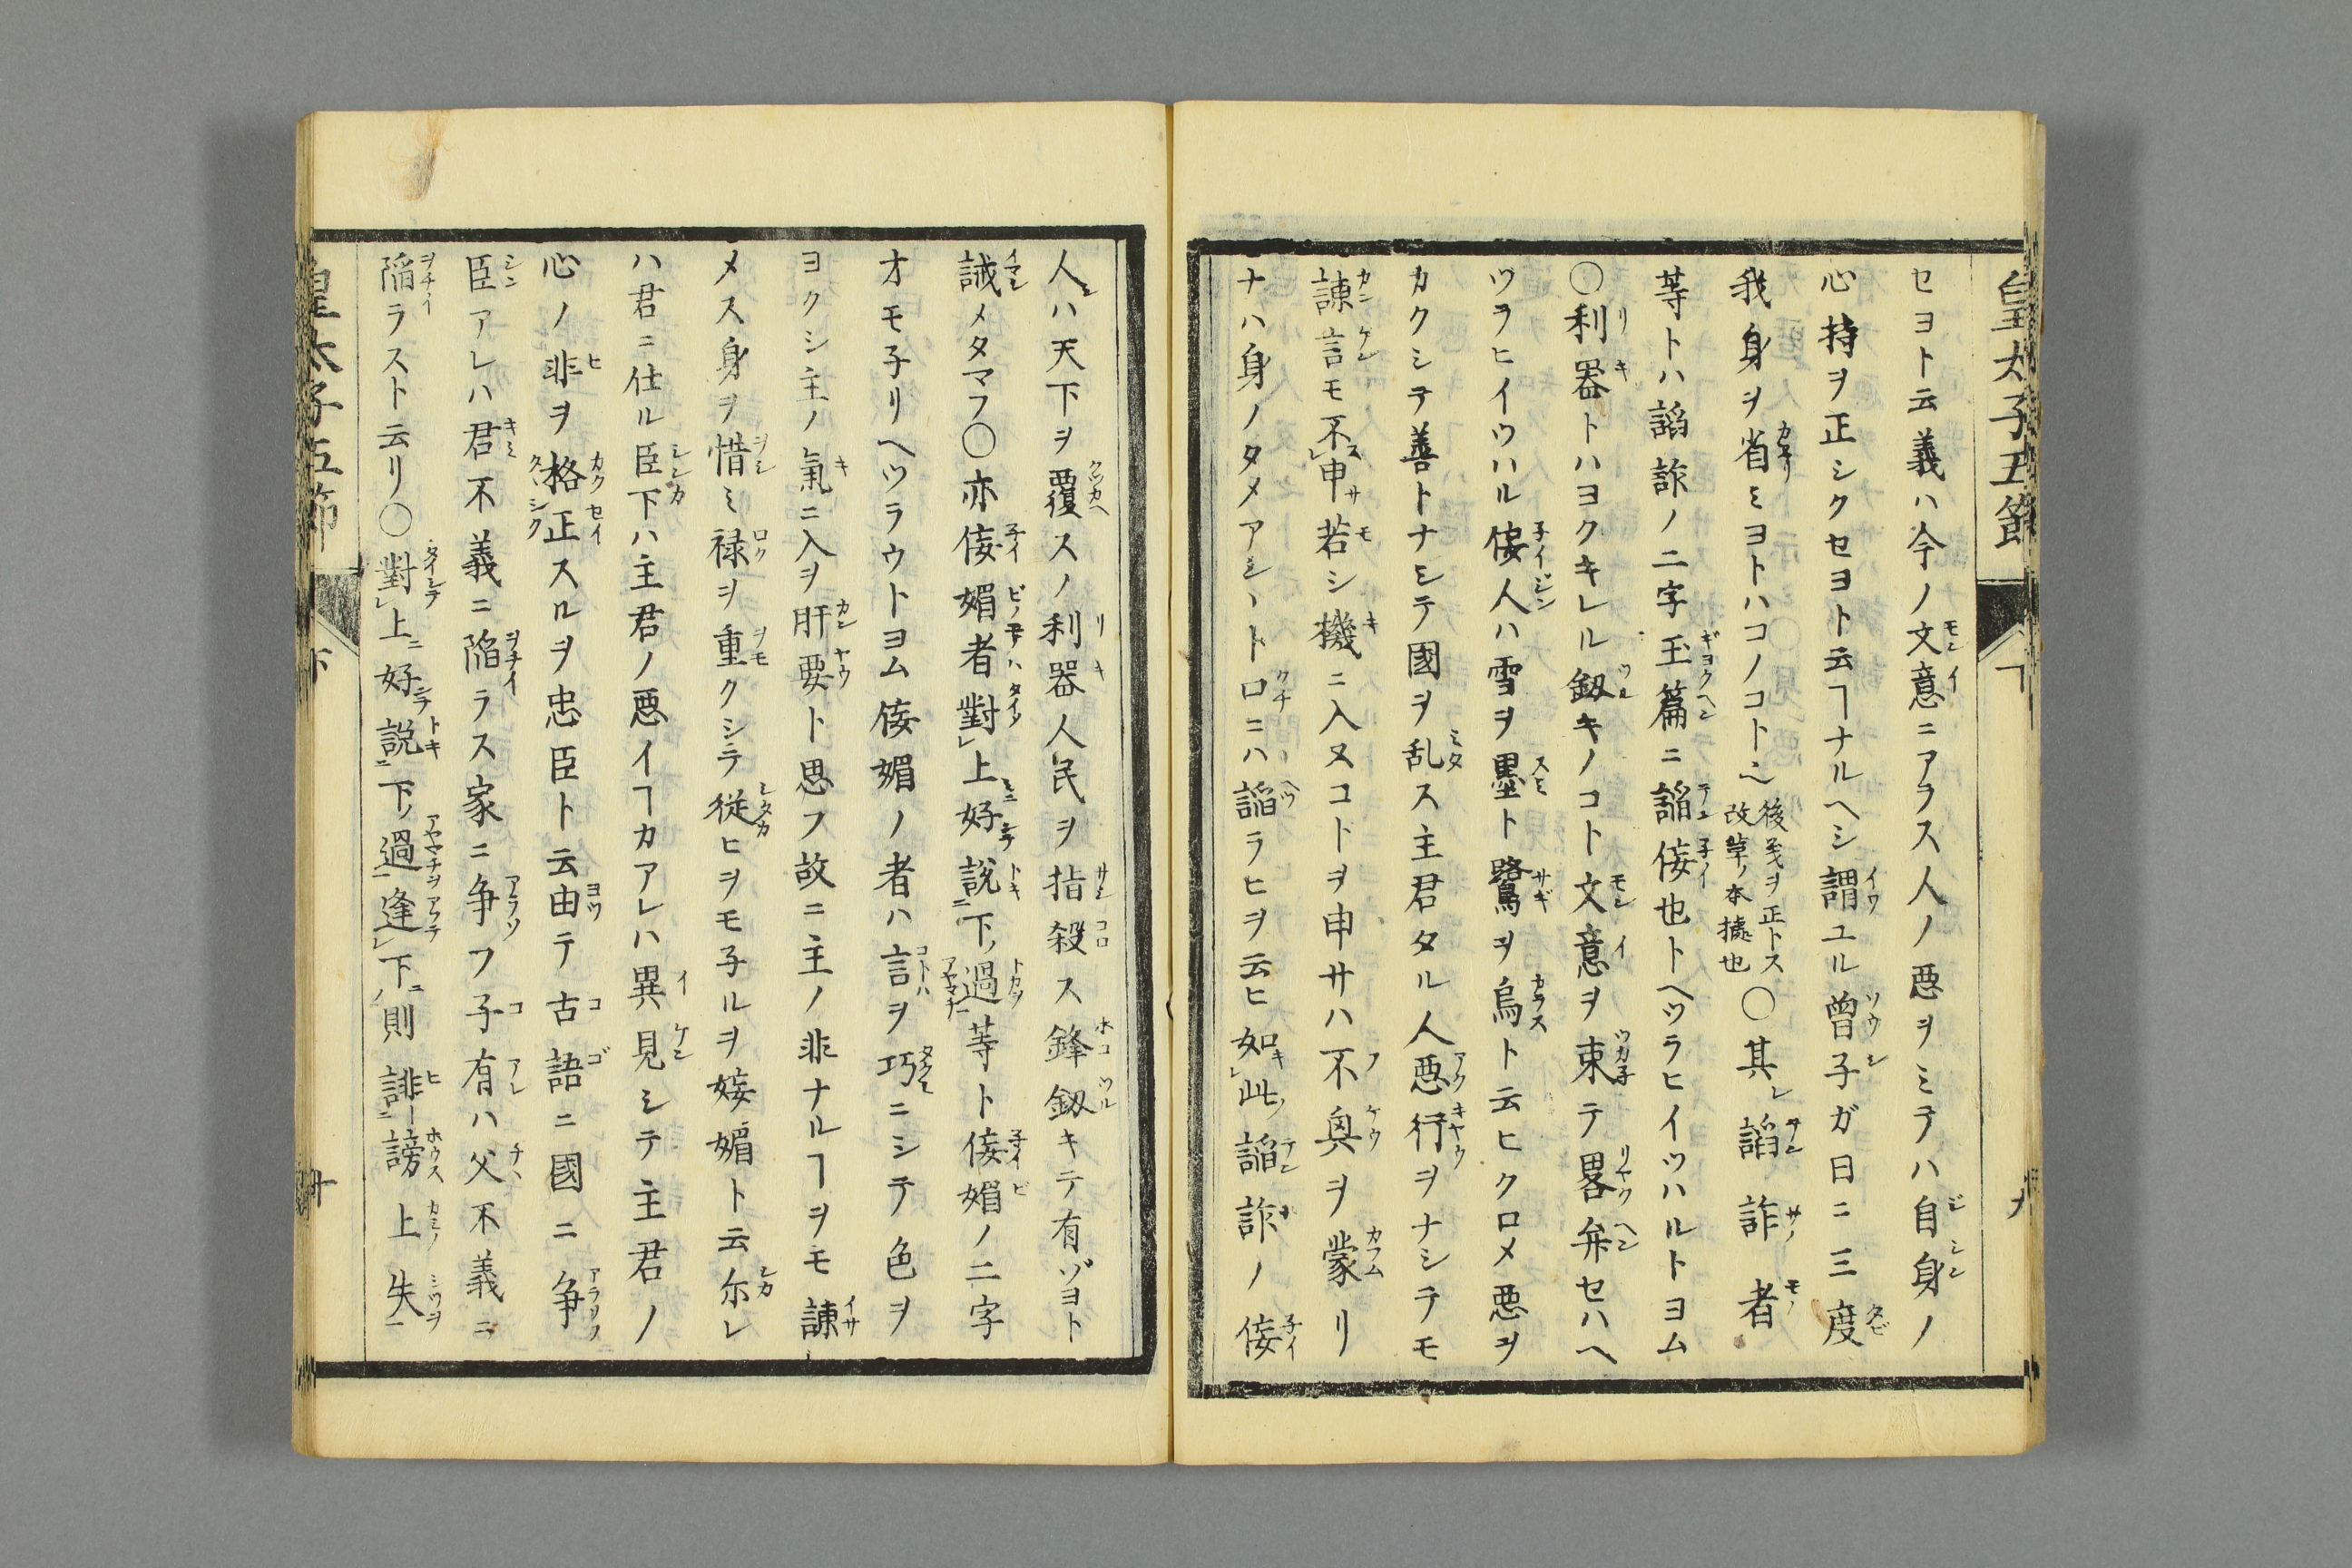 皇太子五節
下
セヨト云義ハ今ノ文意ニアラス人ノ悪ヲミテハ自身ノ
心持ヲ正シクセヨト云ヿナルヘシ謂ユル曽子ガ曰ニ三度
我身ヲ省ミヨトハコノコト也後義ヲ正トス改草ノ本據也〇其レ諂詐者
等トハ諂詐ノ二字玉篇ニ諂侫也トヘツラヒイツハルトヨム
〇利器トハヨクキレル釼キノコト文意ヲ束テ畧弁セハヘ
ツラヒイツハル侫人ハ雪ヲ墨ト鷺ヲ烏ト云ヒクロメ悪ヲ
カクシテ善トナシテ國ヲ乱ス主君タル人悪行ヲナシテモ
諌言モ不申若シ機ニ入ヌコトヲ申サハ不興ヲ蒙リ
ナハ身ノタメアシヽト口ニハ諂ラヒヲ云ヒ如此諂詐ノ侫
人ハ天下ヲ覆スノ利器人民ヲ指殺ス鋒釼キテ有ゾヨト
誡メタマフ〇亦侫媚者對上好説下過等ト侫媚ノ二字
オモ子リヘツラウトヨム侫媚ノ者ハ言ヲ巧ニシテ色ヲ
ヨクシ主ノ氣ニ入ヲ肝要ト思フ故ニ主ノ非ナルヿヲモ諌
メス身ヲ惜ミ禄ヲ重クシテ従ヒヲモ子ルヲ侫媚ト云尓レ
ハ君ニ仕ル臣下ハ主君ノ悪イヿカアレハ異見シテ主君ノ
心ノ非ヲ格正スルヲ忠臣ト云由テ古語ニ國ニ争
臣アレハ君不義ニ陥ラス家ニ争フ子有ハ父不義ニ
陥ラスト云リ〇對上好説下過逢下則誹謗上失
皇太子五節
下
十